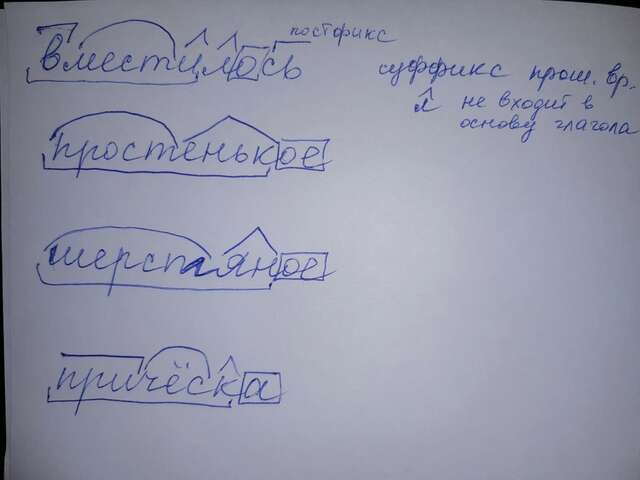 постфикс
вместилось
суффикс прош. вр.
л не входит в
основу глагола
простенькое
шерстяное
причёска